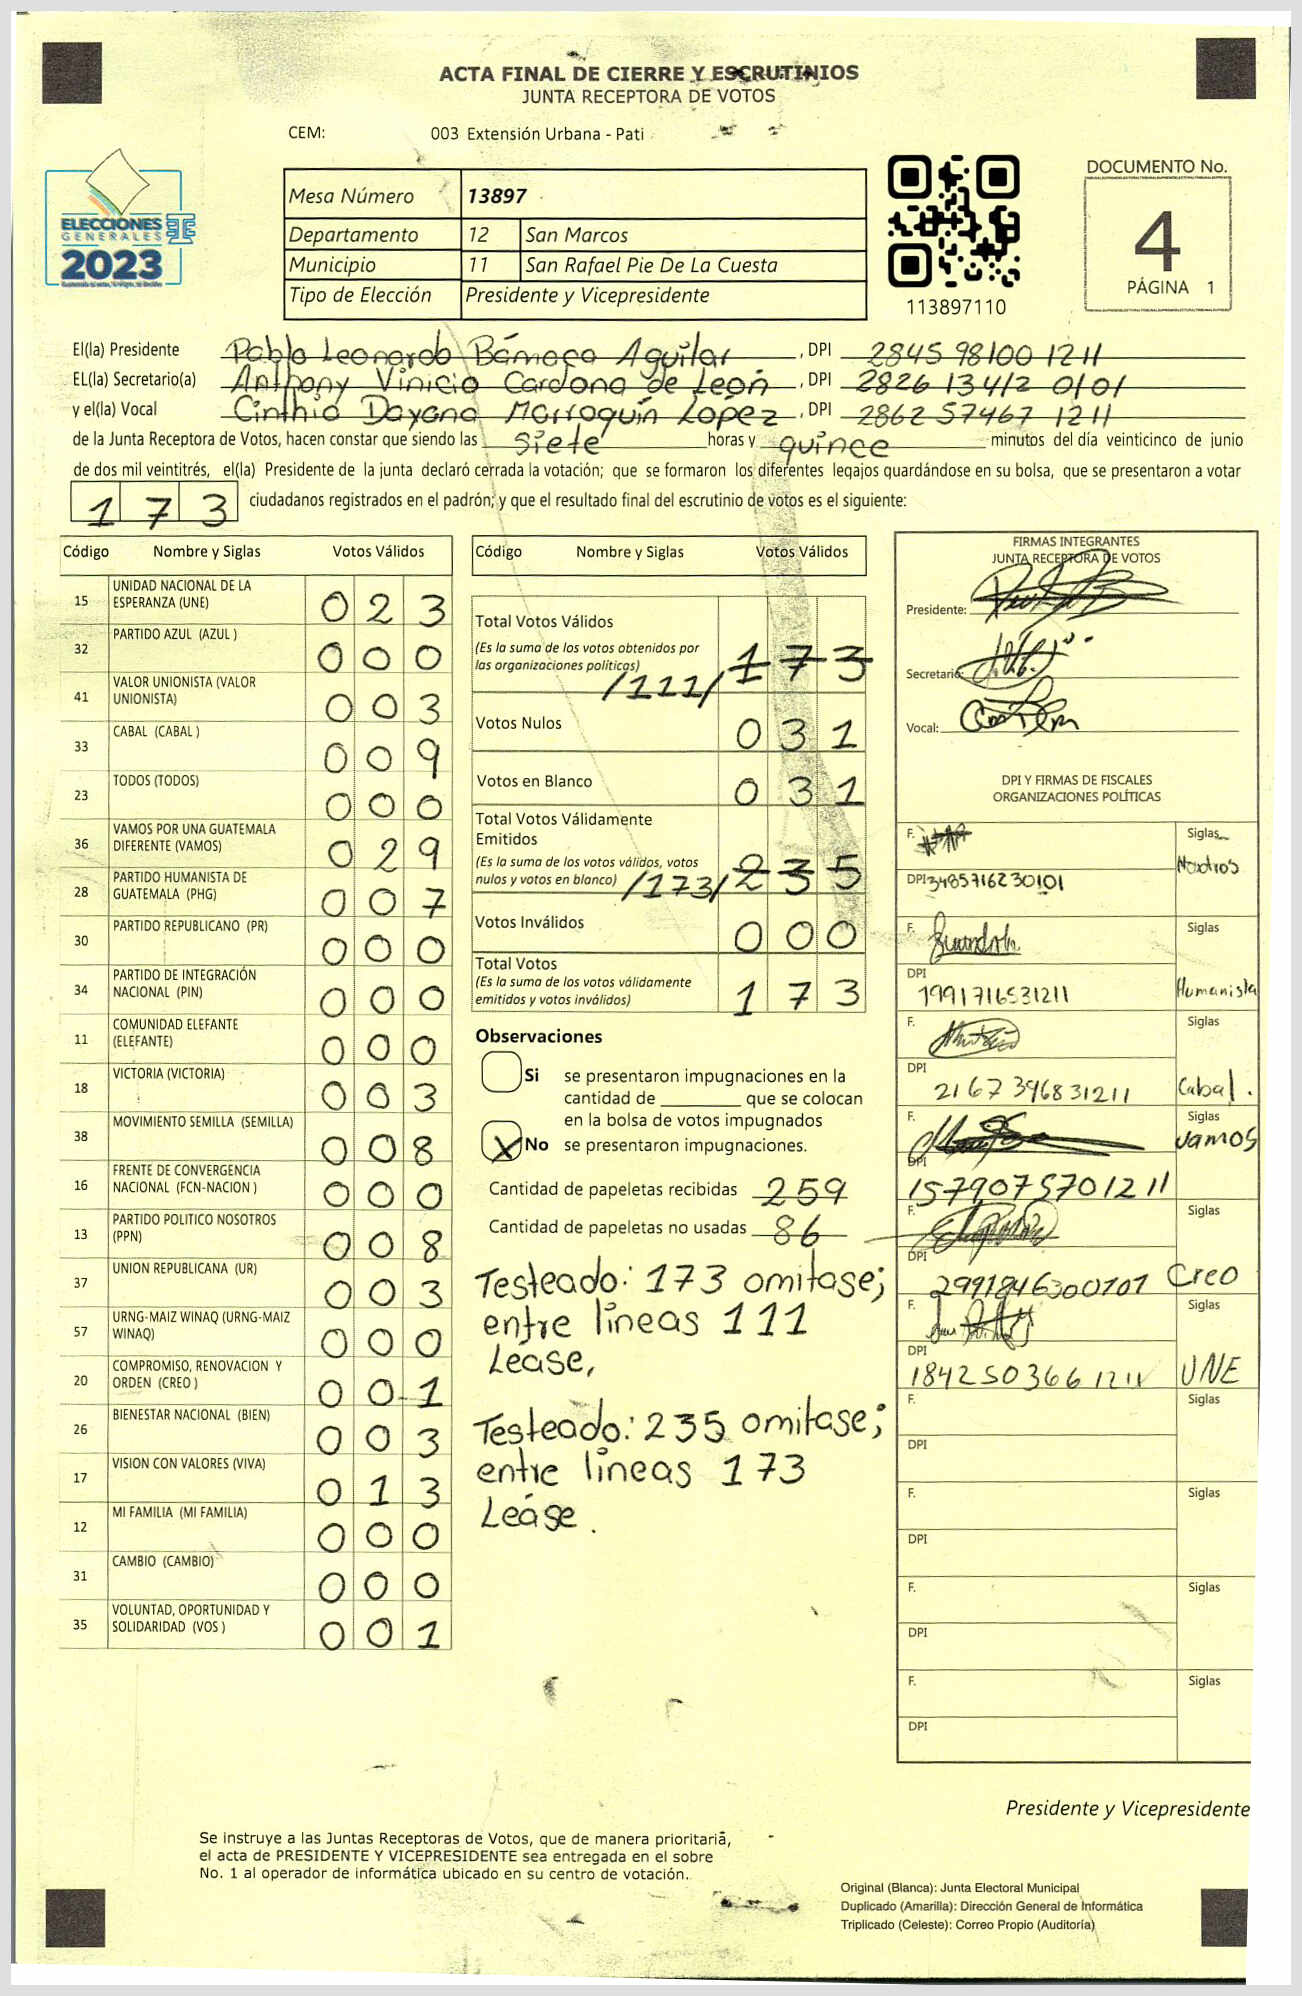 ACTA FINAL DE CIERRE Y ESCRUTINIOS
JUNTA RECEPTORA DE VOTOS
CEM: 003 Extensión Urbana - Pati
ELECCIONES
GENERALES
2023
Mesa Número 13897
Departamento 12 San Marcos
Municipio 11 San Rafael Pie De La Cuesta
Tipo de Elección Presidente y Vicepresidente
113897110
DOCUMENTO No.
4
PÁGINA 1
El(la) Presidente Pablo Leonardo Bámaca Aguilar, DPI 2845 98100 1211
EL(la) Secretario(a) Anthony Vinicio Cardona de León, DPI 2826 13412 0101
y el(la) Vocal Cinthia Dayana Marroquín López, DPI 2862 57467 1211
de la Junta Receptora de Votos, hacen constar que siendo las siete horas y quince minutos del día veinticinco de junio
de dos mil veintitrés, el(la) Presidente de la junta declaró cerrada la votación; que se formaron los diferentes legajos guardándose en su bolsa, que se presentaron a votar
173 ciudadanos registrados en el padrón; y que el resultado final del escrutinio de votos es el siguiente:
Código Nombre y Siglas Votos Válidos
15 UNIDAD NACIONAL DE LA ESPERANZA (UNE) 023
32 PARTIDO AZUL (AZUL ) 000
41 VALOR UNIONISTA (VALOR UNIONISTA) 003
33 CABAL (CABAL ) 009
23 TODOS (TODOS) 000
36 VAMOS POR UNA GUATEMALA DIFERENTE (VAMOS) 029
28 PARTIDO HUMANISTA DE GUATEMALA (PHG) 007
30 PARTIDO REPUBLICANO (PR) 000
34 PARTIDO DE INTEGRACIÓN NACIONAL (PIN) 000
11 COMUNIDAD ELEFANTE (ELEFANTE) 000
18 VICTORIA (VICTORIA) 003
38 MOVIMIENTO SEMILLA (SEMILLA) 008
16 FRENTE DE CONVERGENCIA NACIONAL (FCN-NACION ) 000
13 PARTIDO POLITICO NOSOTROS (PPN) 008
37 UNION REPUBLICANA (UR) 003
57 URNG-MAIZ WINAQ (URNG-MAIZ WINAQ) 000
20 COMPROMISO, RENOVACION Y ORDEN (CREO ) 001
26 BIENESTAR NACIONAL (BIEN) 003
17 VISION CON VALORES (VIVA) 013
12 MI FAMILIA (MI FAMILIA) 000
31 CAMBIO (CAMBIO) 000
35 VOLUNTAD, OPORTUNIDAD Y SOLIDARIDAD (VOS ) 001
Código Nombre y Siglas Votos Válidos
Total Votos Válidos
(Es la suma de los votos obtenidos por
las organizaciones políticas) /111/ 173
Votos Nulos 031
Votos en Blanco 031
Total Votos Válidamente
Emitidos
(Es la suma de los votos válidos, votos
nulos y votos en blanco) /173/ 235
Votos Inválidos 000
Total Votos
(Es la suma de los votos válidamente
emitidos y votos inválidos) 173
Observaciones
Si se presentaron impugnaciones en la
cantidad de ________ que se colocan
en la bolsa de votos impugnados
X No se presentaron impugnaciones.
Cantidad de papeletas recibidas 259
Cantidad de papeletas no usadas 86
Testeado: 173 omitase;
entre líneas 111
Lease,
Testeado: 235 omitase;
entre líneas 173
Leáse.
FIRMAS INTEGRANTES
JUNTA RECEPTORA DE VOTOS
Presidente:
Secretario:
Vocal:
DPI Y FIRMAS DE FISCALES
ORGANIZACIONES POLÍTICAS
F. Siglas Nosotros
DPI 3485716230101
F. Siglas Humanista
DPI 1991716531211
F. Siglas Cabal.
DPI 2167396831211
F. Siglas Vamos
DPI 1579075701211
F. Siglas Creo
DPI 2991846300101
F. Siglas UNE
DPI 1842503661211
F. Siglas
DPI
F. Siglas
DPI
F. Siglas
DPI
F. Siglas
DPI
Presidente y Vicepresidente
Se instruye a las Juntas Receptoras de Votos, que de manera prioritaria,
el acta de PRESIDENTE Y VICEPRESIDENTE sea entregada en el sobre
No. 1 al operador de informática ubicado en su centro de votación.
Original (Blanca): Junta Electoral Municipal
Duplicado (Amarilla): Dirección General de Informática
Triplicado (Celeste): Correo Propio (Auditoría)